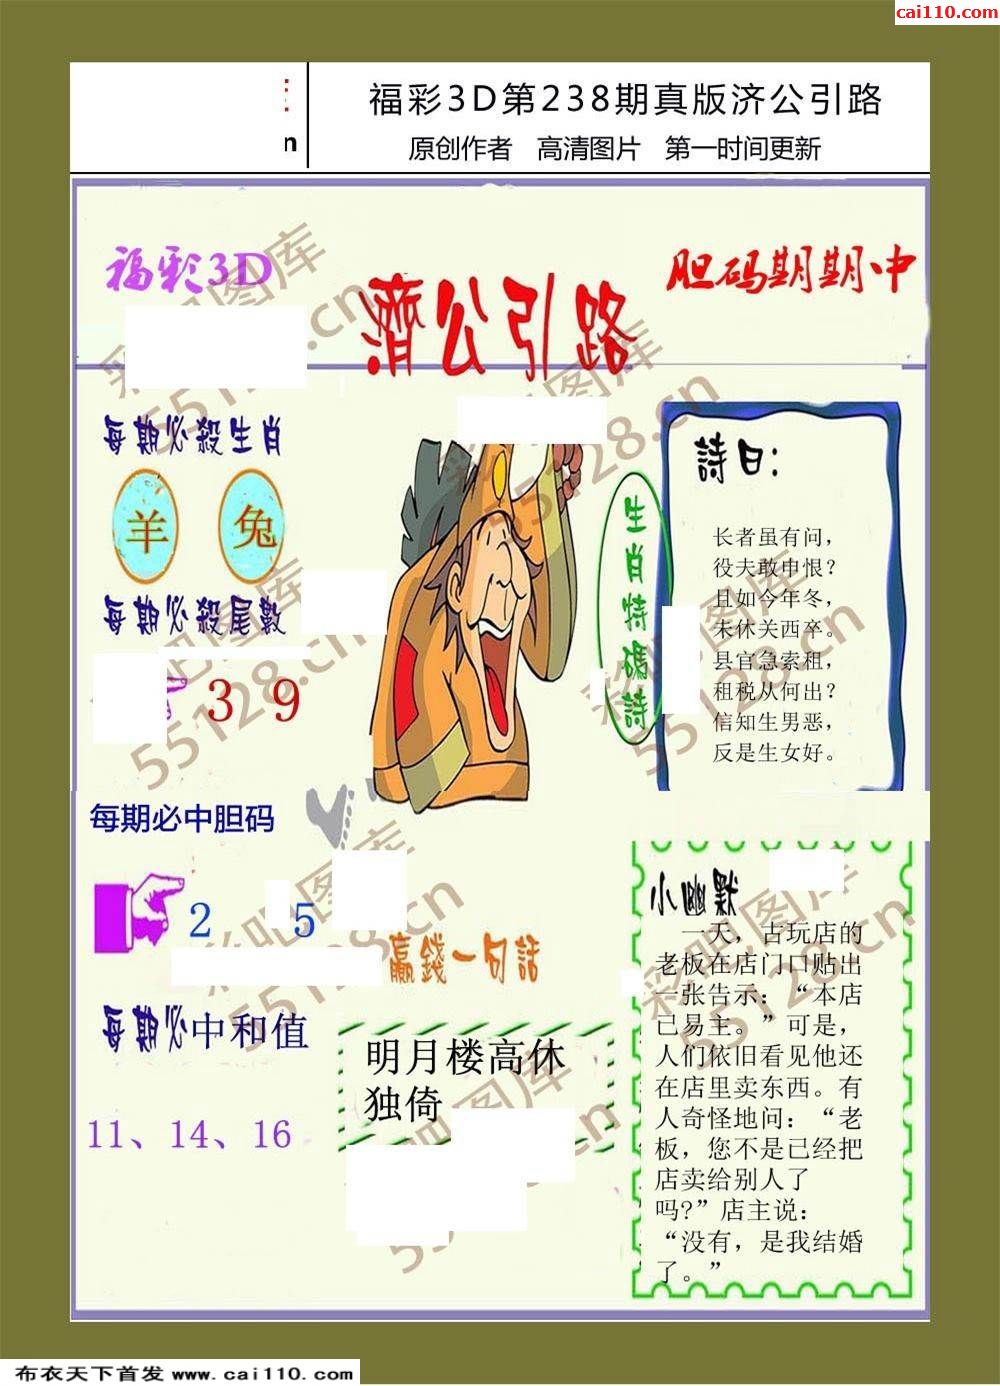 cai110.com
福彩3D第238期真版济公引路
n
原创作者 高清图片 第一时间更新
福彩3D
胆码期期中
濟公引路
每期必殺生肖
羊 兔
每期必殺尾數
3 9
生肖特碼詩
詩曰：
长者虽有问，
役夫敢申恨？
且如今年冬，
未休关西卒。
县官急索租，
租税从何出？
信知生男恶，
反是生女好。
每期必中胆码
2 5
赢錢一句話
明月楼高休
独倚
每期必中和值
11、14、16
小幽默
一天，古玩店的
老板在店门口贴出
一张告示：“本店
已易主。”可是，
人们依旧看见他还
在店里卖东西。有
人奇怪地问：“老
板，您不是已经把
店卖给别人了
吗?”店主说：
“没有，是我结婚
了。”
彩吧图库
55128.cn
彩吧图库
55128.cn
彩吧图库
55128.cn
布衣天下首发 www.cai110.com